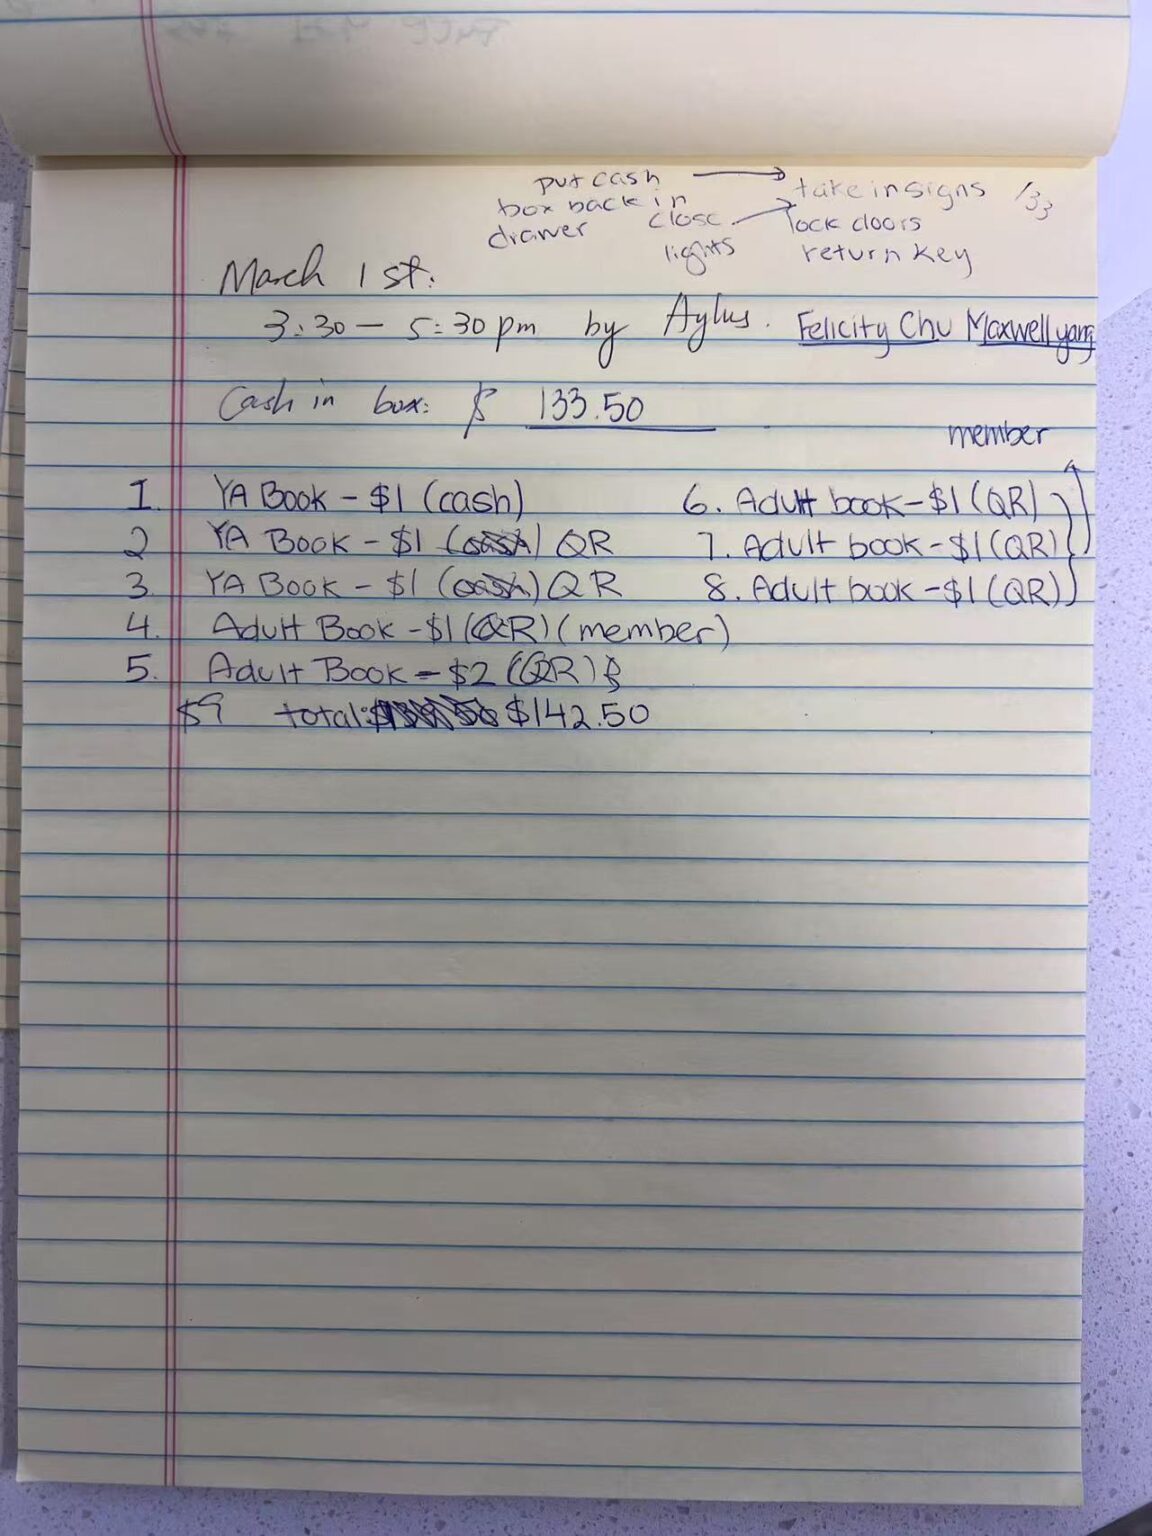 put cash → take in signs
box back in close → lock doors
drawer lights return key
March 1st.
3:30 – 5:30 pm by Aylus. Felicity Chu Maxwell yang
Cash in box: $ 133.50
member
1. YA Book - $1 (cash)
2 YA Book - $1 (cash) QR
3. YA Book - $1 (cash) QR
4. Adult Book - $1 (QR) (member)
5. Adult Book - $2 (QR)
6. Adult book - $1 (QR)
7. Adult book - $1 (QR)
8. Adult book - $1 (QR)
$9 total: $142.50